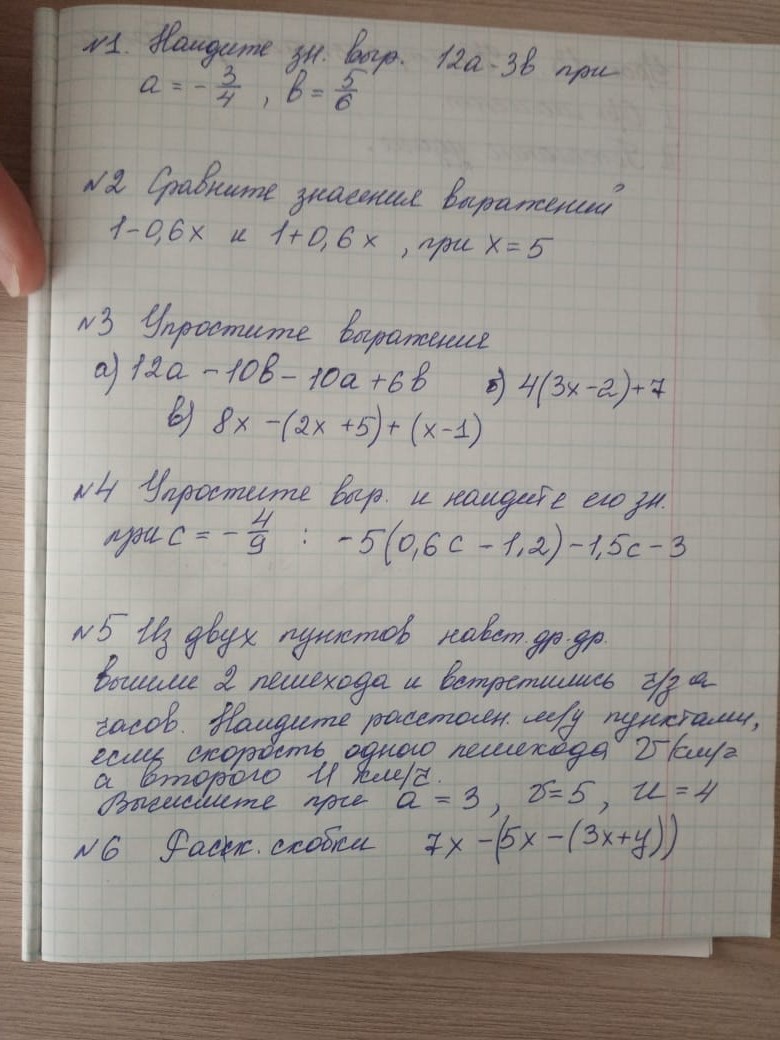 №1. Найдите зн. выр. 12a - 3в при
a = - 3/4 , в = 5/6
№2 Сравните значения выражений
1-0,6x и 1+0,6x , при x = 5
№3 Упростите выражение
а) 12a - 10в - 10a + 6в б) 4(3x-2)+7
в) 8x -(2x +5)+ (x-1)
№4 Упростите выр. и найдите его зн.
при c = - 4/9 : -5(0,6c - 1,2) - 1,5c - 3
№5 Из двух пунктов навст. др. др.
вышли 2 пешехода и встретились ч/з a
часов. Найдите расстоян. м/у пунктами,
если скорость одного пешехода v км/ч
а второго u км/ч.
Вычислите при a = 3, v=5, u = 4
№6 Раск. скобки 7x -(5x -(3x+y))